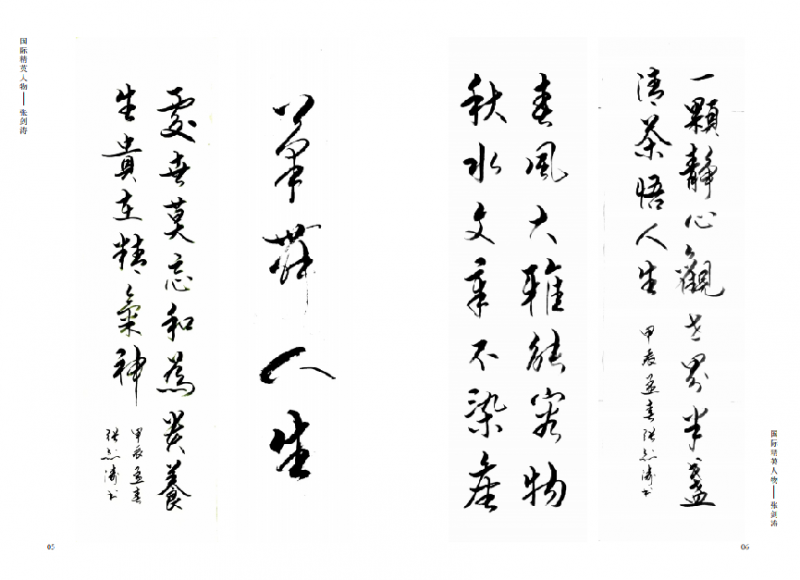 国际精英人物——张剑涛
筆舞人生
處世莫忘和為贵養
生貴在精氣神
甲辰孟春
張剑涛书
05
一顆靜心觀世界半盏
清茶悟人生 甲辰孟春張剑涛书
春風大雅能容物
秋水文章不染塵
国际精英人物——张剑涛
06